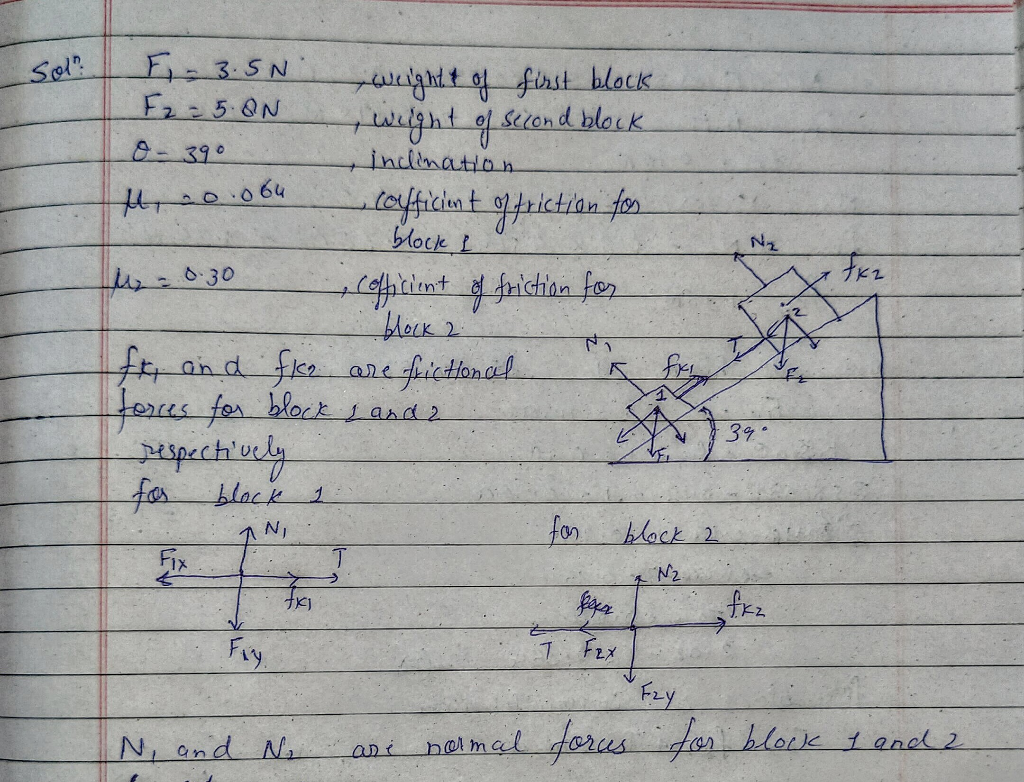 Solⁿ: F₁ = 3.5 N , weight of first block
F₂ = 5.0N , weight of second block
θ = 39° , inclination
μ₁ = 0.064 , cofficient of friction for
block 1
μ₂ = 0.30 , cofficient of friction for
block 2
fk₁ and fk₂ are frictional
forces for block 1 and 2
respectively
N₂
fk₂
2
T
F₂
N₁
fk₁
1
F₁
39°
for block 1
N₁
F₁x
T
fk₁
F₁y
for block 2
N₂
fk₂
T F₂x
F₂y
N₁ and N₂ are normal forces for block 1 and 2